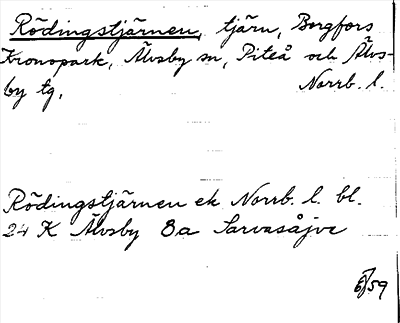 Rödingstjärnen, tjärn, Borgfors
Kronopark, Älvsby sn, Piteå och Älvs-
by tg, Norrb. l.
Rödingstjärnen ek Norrb. l. bl.
24 K Älvsby 8a Sarvasåive
59